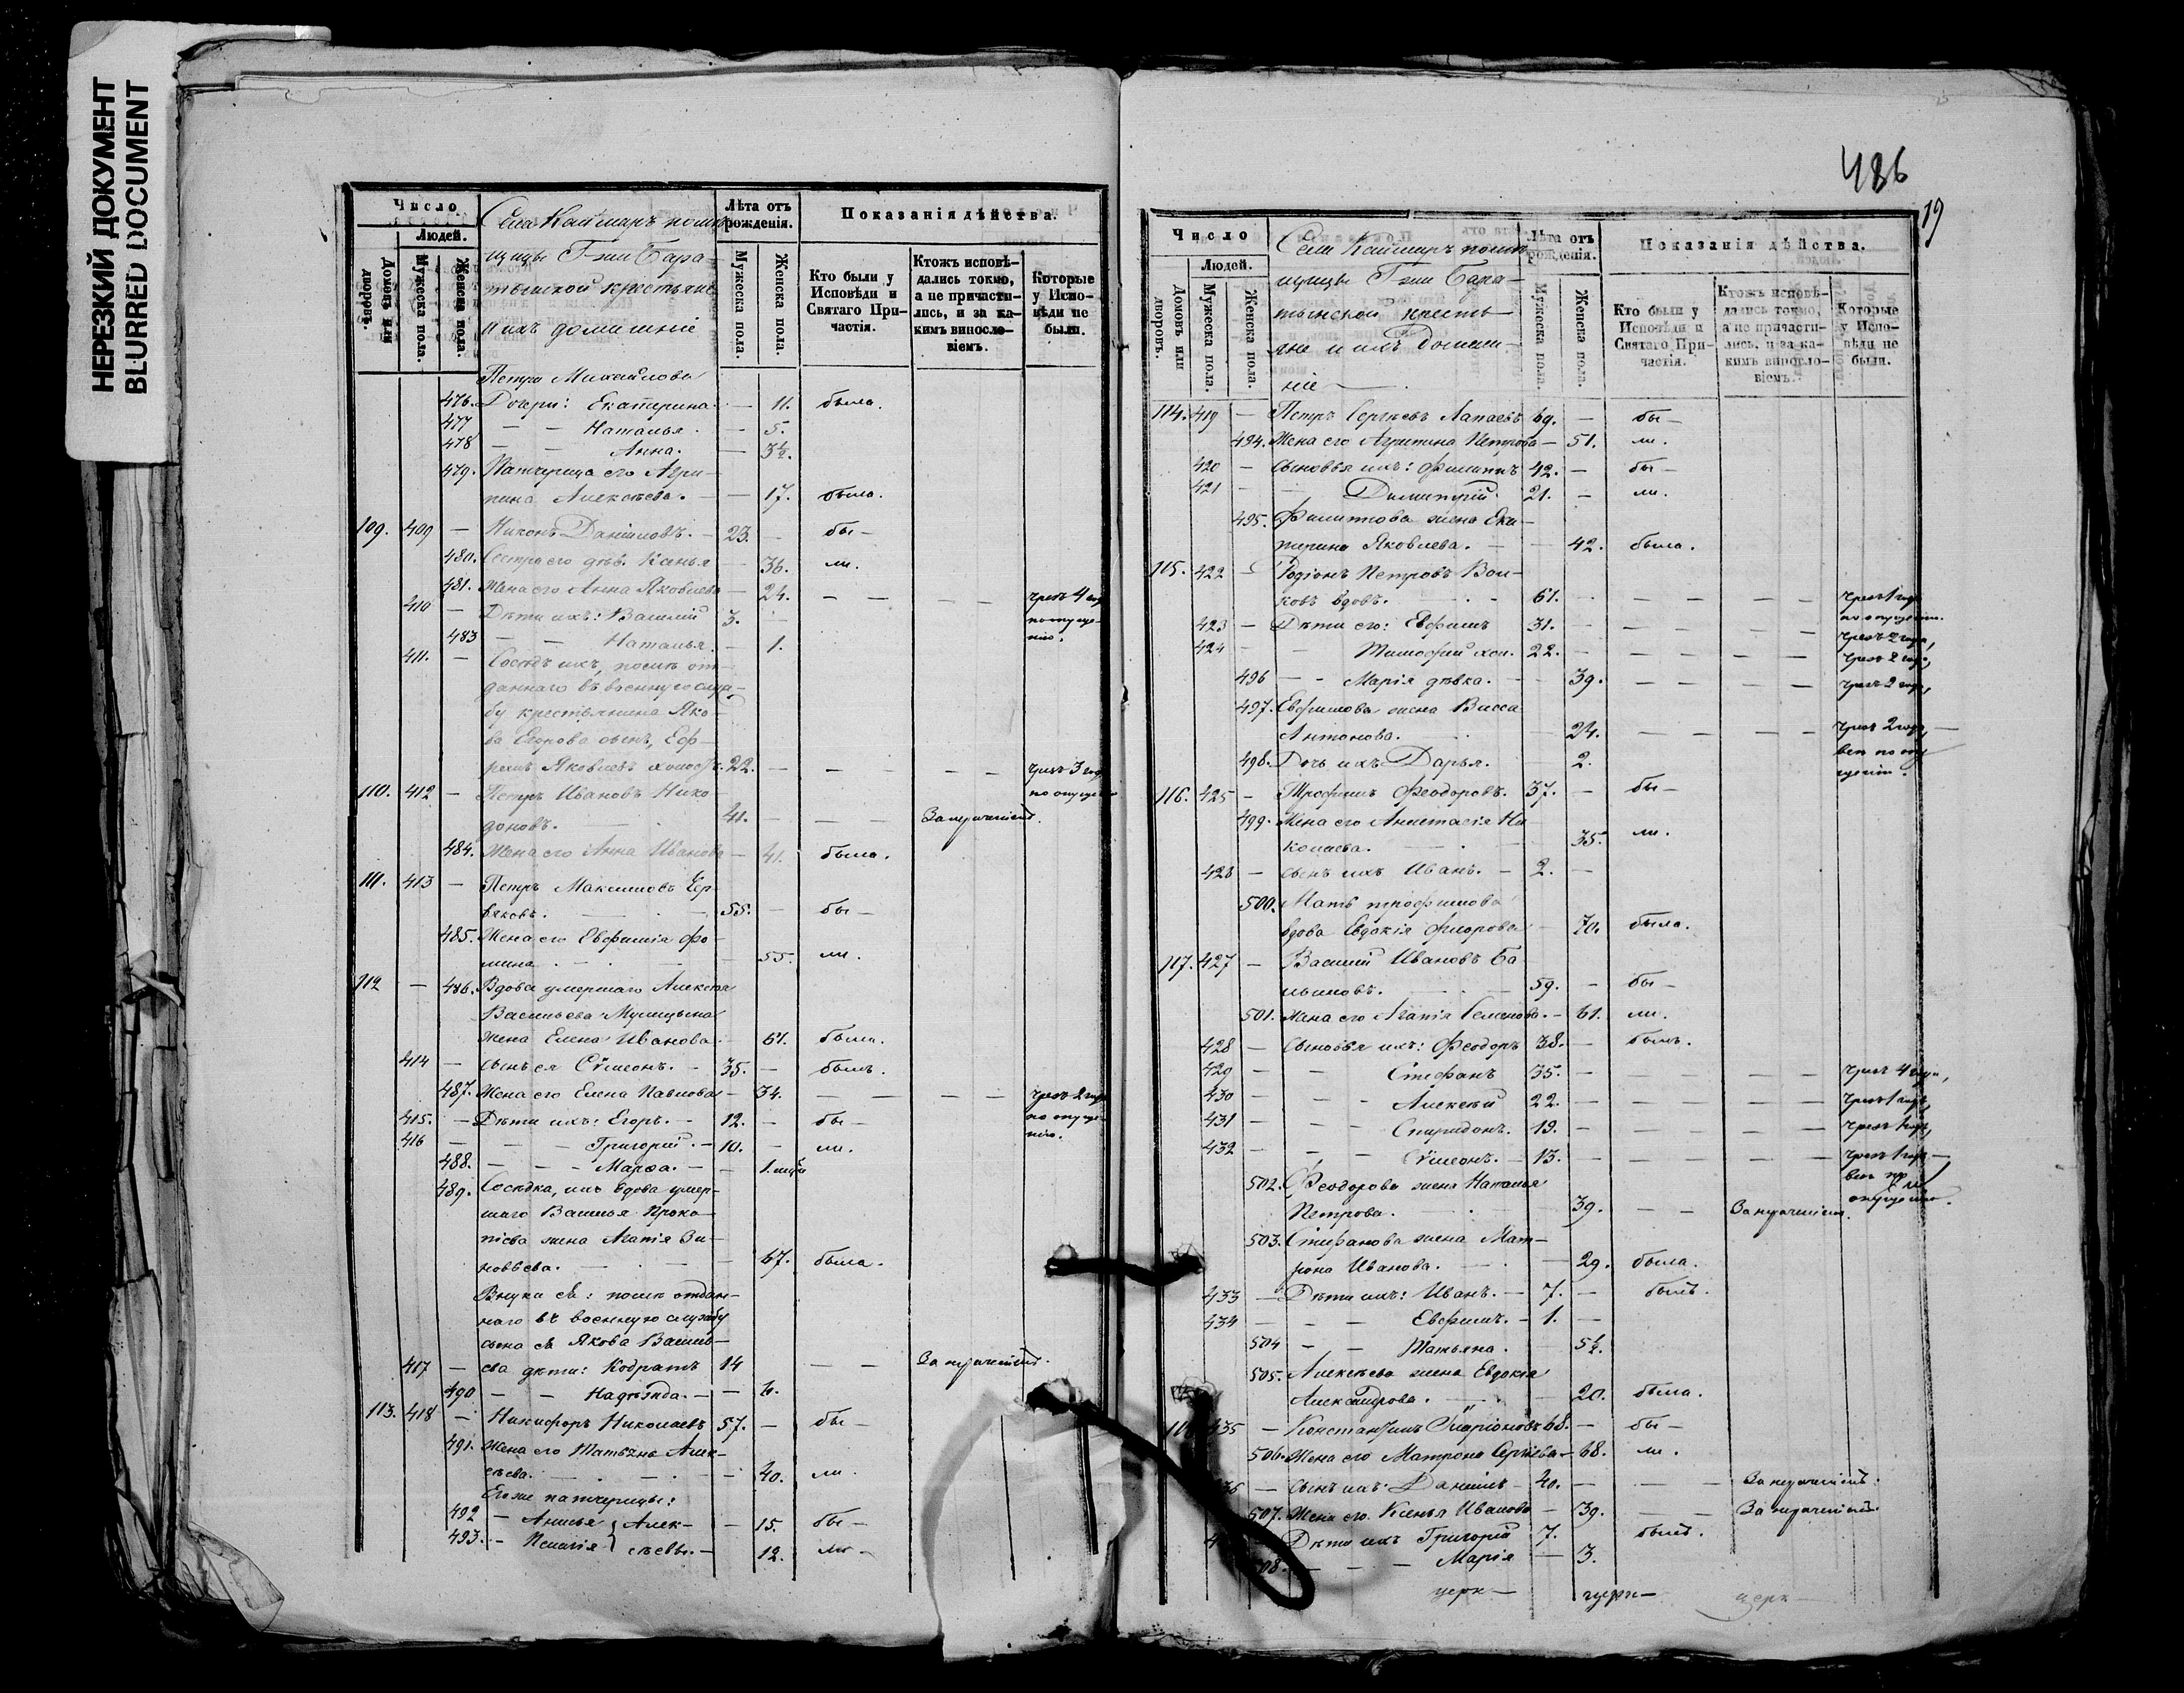 НЕРЕЗКИЙ ДОКУМЕНТ
BLURRED DOCUMENT
Число
Людей.
Домовъ или дворовъ.
Мужеска пола.
Женска пола.
Села Каймаръ помѣ-
щицы Г-жи Бара-
тынской крестьяне
и ихъ домашніе
Лѣта отъ рожденія.
Мужеска пола.
Женска пола.
Показанія дѣйства.
Кто были у Исповѣди и Святаго Причастія.
Ктожъ исповѣдались токмо, а не причастились, и за какимъ винословіемъ.
Которые у Исповѣди не были.
Петра Михайлова
476. Дочери: Екатерина. — 11. была.
477 — — Наталья. — 5.
478 — — Анна. — 3½.
479. Падчерица его Агри-
пина Алексѣева. — 17. была.
109. 409 — Никонъ Даніиловъ. — 23. — бы —
480. Сестра его дѣв. — 36. ли.
481. Жена его Анна Яковлева — 24. — — — — чрезъ 4 года
410 — Дѣти ихъ: Василій 3. — по опуще-
483 — — Наталья. — 1. нію.
411. — Сосѣдъ ихъ, послѣ от-
даннаго въ военную служ-
бу крестьянина Яко-
ва Егорова сынъ, Еф-
ремъ Яковлевъ холостъ. 22. — — — — — чрезъ 3 года
110. 412 — Петръ Ивановъ Нико- по опущен.
доновъ. — 41. — — — За нерачені
484. Жена его Анна Иванова — 41. была.
111. 413 — Петръ Максимовъ Чер-
вяковъ. — 55. — бы —
485. Жена его Евфимія Фо-
мина — 55. ли.
112 — 486. Вдова умершаго Алексѣя
Васильева
жена Елена Иванова. 61. была.
414 — Сынъ ея Сѵмеонъ. — 35. — былъ.
487. Жена его Елена Павлова — 34. — — — — чрезъ 2 года
415. — Дѣти ихъ: Егоръ. — 12. — бы — по опуще-
416 — — Григорій. — 10. — ли. нію.
488. — — Марѳа. — — 1.
489. Сосѣдка, ихъ вдова умер-
шаго Василья Проко-
піева жена Агапія Зи-
новьева. — 67. была.
Внуки еѣ: послѣ отдан-
наго въ военную службу
сына еѣ Якова Василь-
407 — ева дѣти: Кодратъ 14 — — За нерачені
490 — — Надѣжда. — — 6.
113. 418 — Никифоръ Николаевъ 57. — бы —
491. Жена его Татьяна Алек-
сѣева. — 40. ли.
Егоже падчерицы:
492 — Анисья } Алек- — 15. бы —
493. — Пелагія } сѣевы. — 12. ли —
486
19
Число
Людей.
Домовъ или дворовъ.
Мужеска пола.
Женска пола.
Села Каймаръ помѣ-
щицы Г-жи Бара-
тынской кресть-
яне и ихъ домаш-
ніе —
Лѣта отъ рожденія.
Мужеска пола.
Женска пола.
Показанія дѣйства.
Кто были у Исповѣди и Святаго Причастія.
Ктожъ исповѣдались токмо, а не причастились, и за какимъ винословіемъ.
Которые у Исповѣди не были.
114. 419 — Петръ Сергѣевъ Лапаевъ 69. — бы —
494. Жена его Агрипина Петрова — 51. ли.
420 — Сыновья ихъ: Филиппъ 42. — бы —
421 — — Димитрій 21. — ли.
495. Филиппова жена Ека-
терина Яковлева. — 42. была.
115. 422 — Родіонъ Петровъ Вол-
ковъ вдовъ. — 61. — — — — чрезъ 1 годъ
по опущенію.
423 — Дѣти его: Евфимъ 31. — — — — чрезъ 2 года,
424 — — Тимофей хол. 22. — — — — чрезъ 2 года,
496 — — Марія дѣвка. — 39. — — — — чрезъ 2 года,
497. Евфимова жена Васса
Антонова. — 24. — — — — чрезъ 2 года, —
498. Дочь ихъ Дарья. 2. всѣ по опу-
щенію.
116. 425 — Трофимъ Феодоровъ. 37. — бы —
499. Жена его Анастасія Ни
колаева. — 35. ли.
428 — сынъ ихъ Иванъ. — 2. —
500. Мать трофимова
вдова Евдокія Флорова — 70. была.
117. 427 — Василій Ивановъ Ба
— 59. — бы —
501. Жена его Агапія Семенова. — 61. ли.
428 — Сыновья ихъ: Феодоръ 38. — былъ.
429 — — Стефанъ 35. — — — — чрезъ 4 года,
430 — — Алексѣй 22. — — — — чрезъ 1 годъ,
431 — — Спиридонъ. 19. — — — — чрезъ 1 годъ,
432 — — Сѵмеонъ. — 13. — — — — чрезъ 1 годъ —
502. Феодорова жена Наталья всѣ по
Петрова. — 39. — — За нерачені опущенію.
503. Стефанова жена Мат-
рона Иванова. — 29. была.
433 — Дѣти ихъ: Иванъ. — 7. — былъ.
434 — — Евфимъ. — 1. —
504 — — Татьяна. 5½.
505. Алексѣева жена Евдокія
Александрова. — 20. была.
435 — Константинъ Иларіоновъ 68. — бы —
506. Жена его Матрона Сергѣева — 68. ли.
— Сынъ ихъ: Даніилъ — 40. — — За нерачені
507. Жена его Ксенья Иванова — 39. — — За нерачені
Дѣти ихъ Григорій 7. былъ.
— — Марія — 3.
церк — церк — церк —